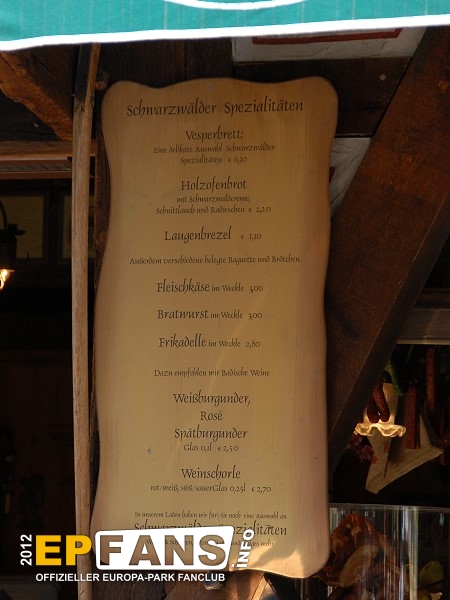 Schwarzwälder Spezialitäten
Vesperbrett:
Eine delikate Auswahl Schwarzwälder
Spezialitäten € 6,30
Holzofenbrot
mit Schwarzwaldcreme,
Schnittlauch und Radieschen € 2,20
Laugenbrezel € 1,30
Außerdem verschiedene belegte Baguette und Brötchen.
Fleischkäse im Weckle 3,00
Bratwurst im Weckle 3,00
Frikadelle im Weckle 2,80
Dazu empfehlen wir Badische Weine
Weißburgunder,
Rosé
Spätburgunder
Glas 0,2l € 2,50
Weinschorle
rot/weiß, süß/sauer Glas 0,25l € 2,70
In unserem Laden haben wir für sie noch eine Auswahl an
Schwarzwälder Spezialitäten
2012 EPFANS.info
OFFIZIELLER EUROPA-PARK FANCLUB